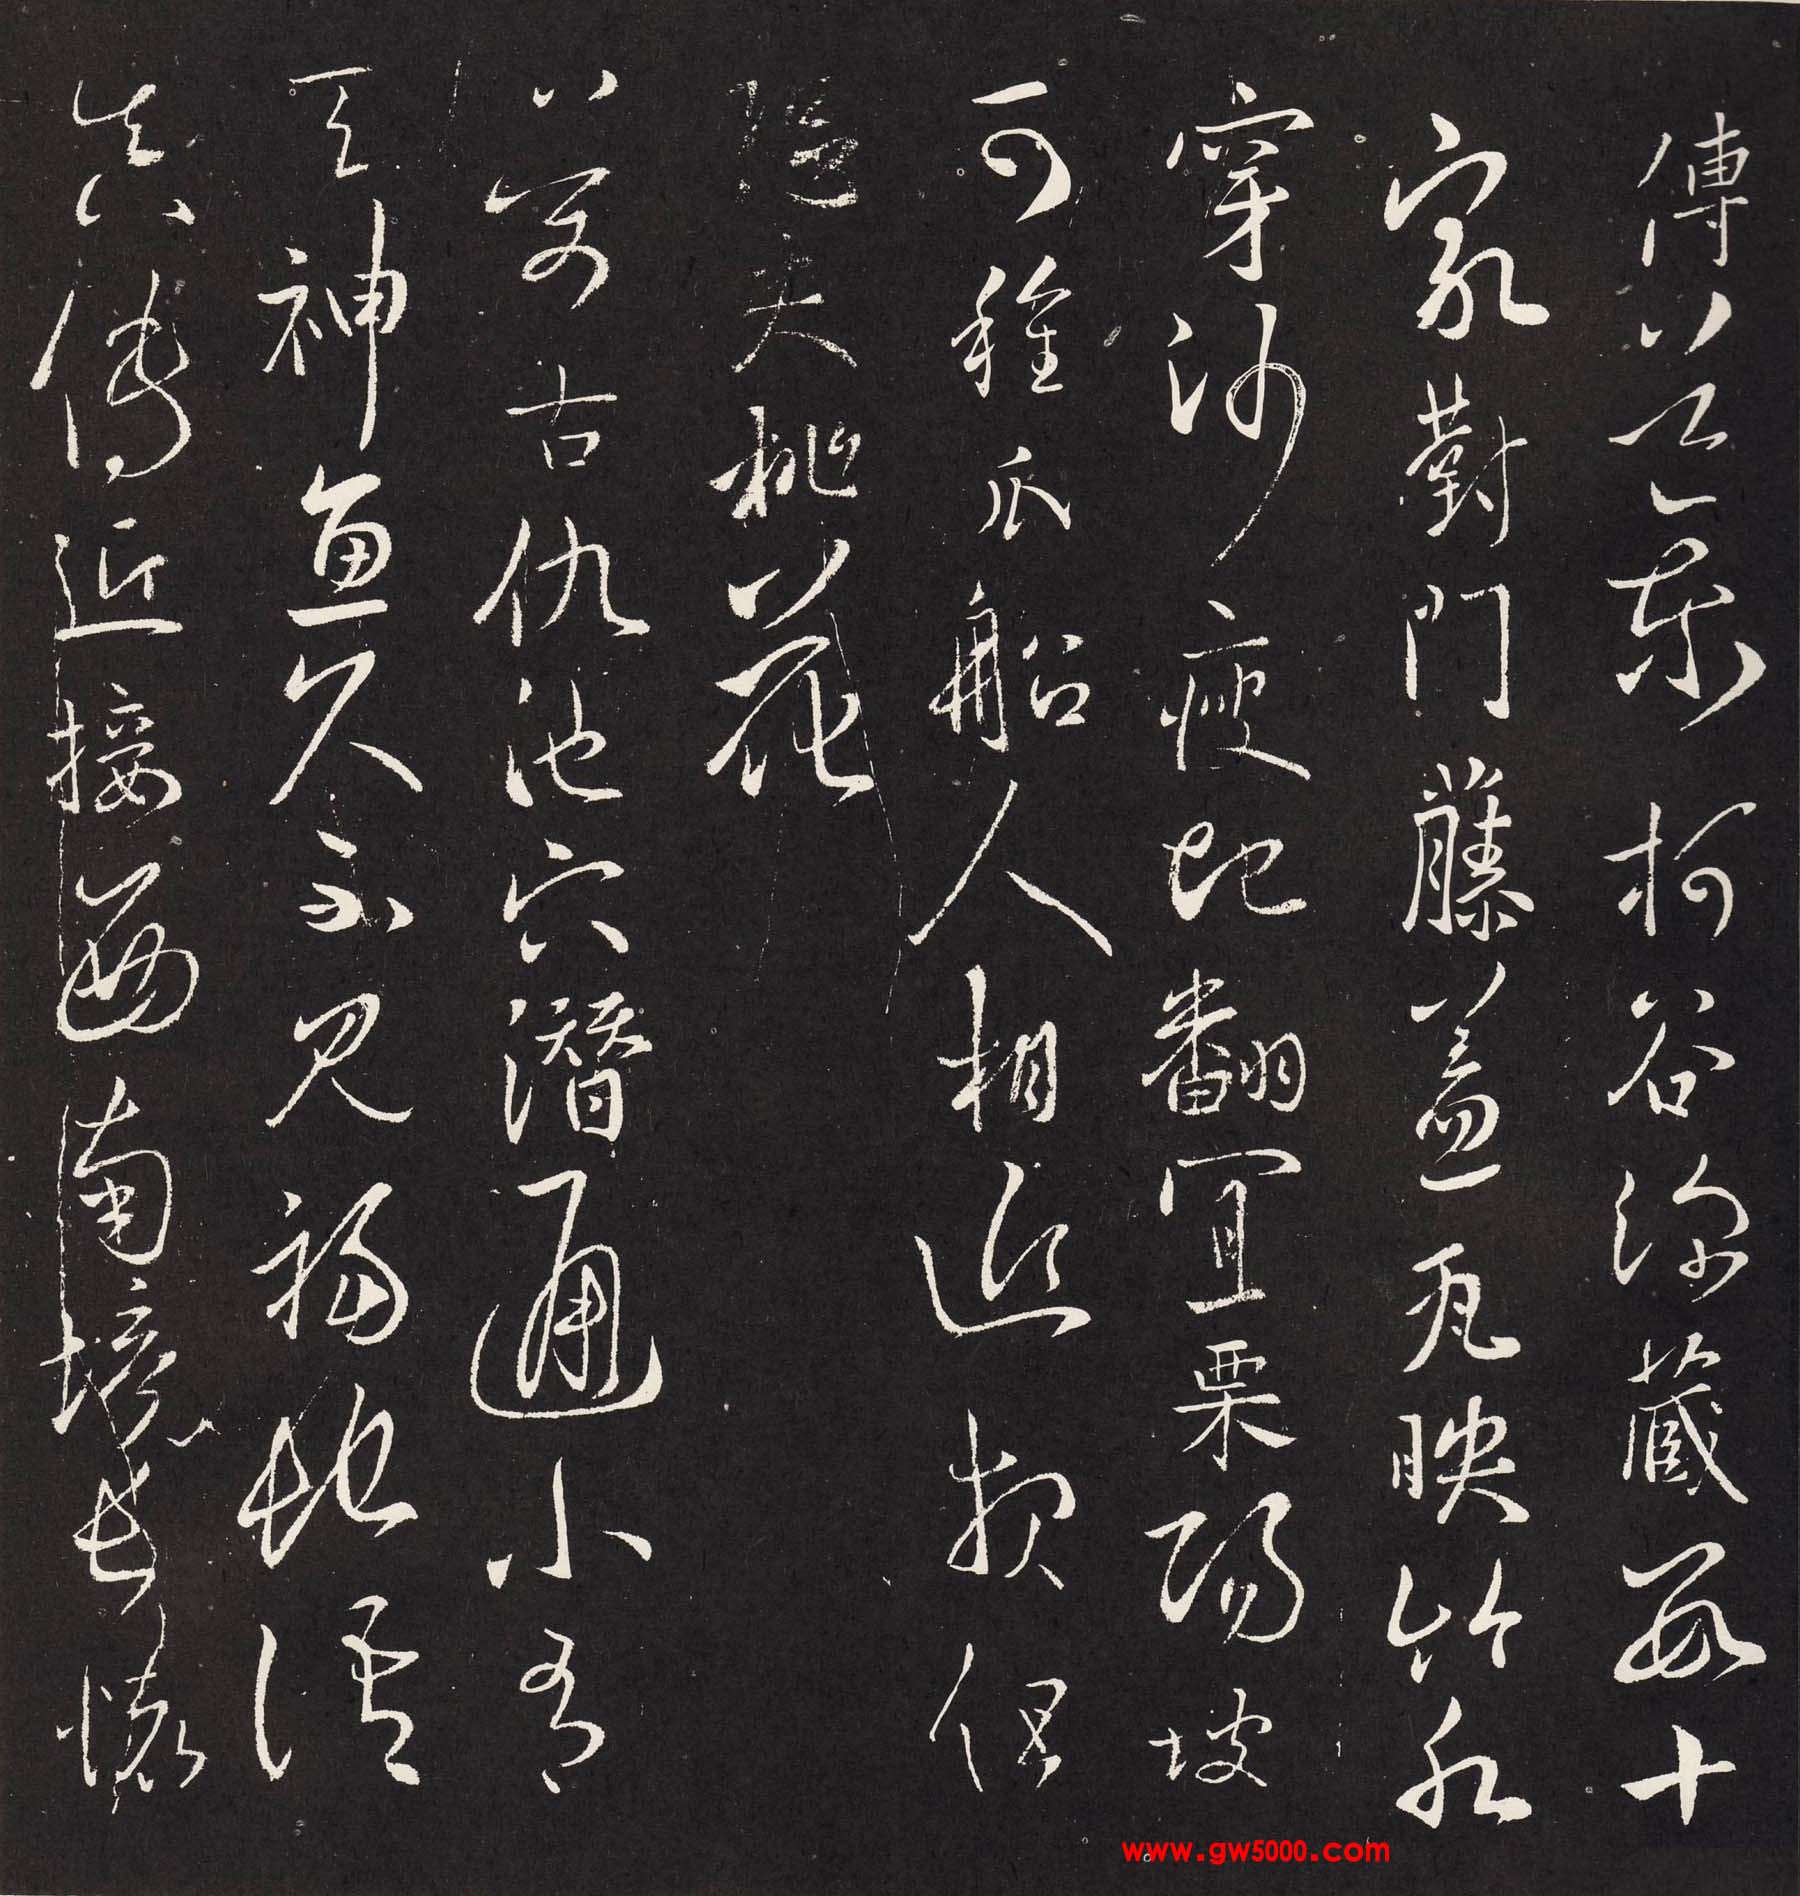 傳道東柯谷深藏數十
家對門藤蓋瓦映竹水
穿沙瘦地翻宜粟陽坡
可種瓜船人相近報但
恐失桃花
萬古仇池穴潛通小有
天神魚久不見福地語
真傳近接西南境長懷
www.gw5000.com